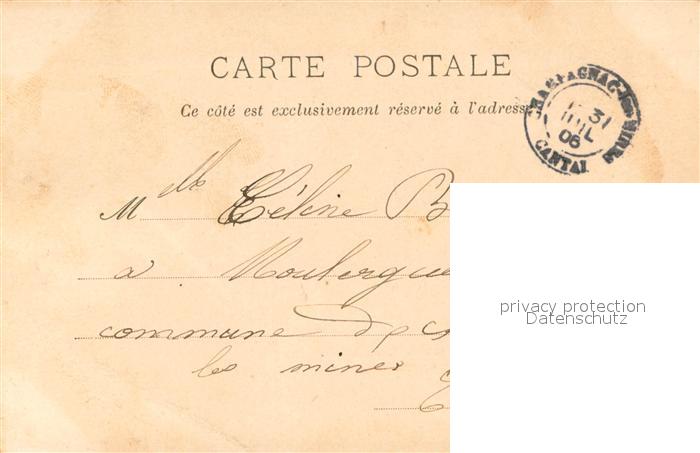 CARTE POSTALE
Ce côté est exclusivement réservé à l'adresse
CHAMPAGNAC-les-MINES
31
JUIL
06
CANTAL
Mlle Céline B
à Moulergue
commune de
les mines
privacy protection
Datenschutz